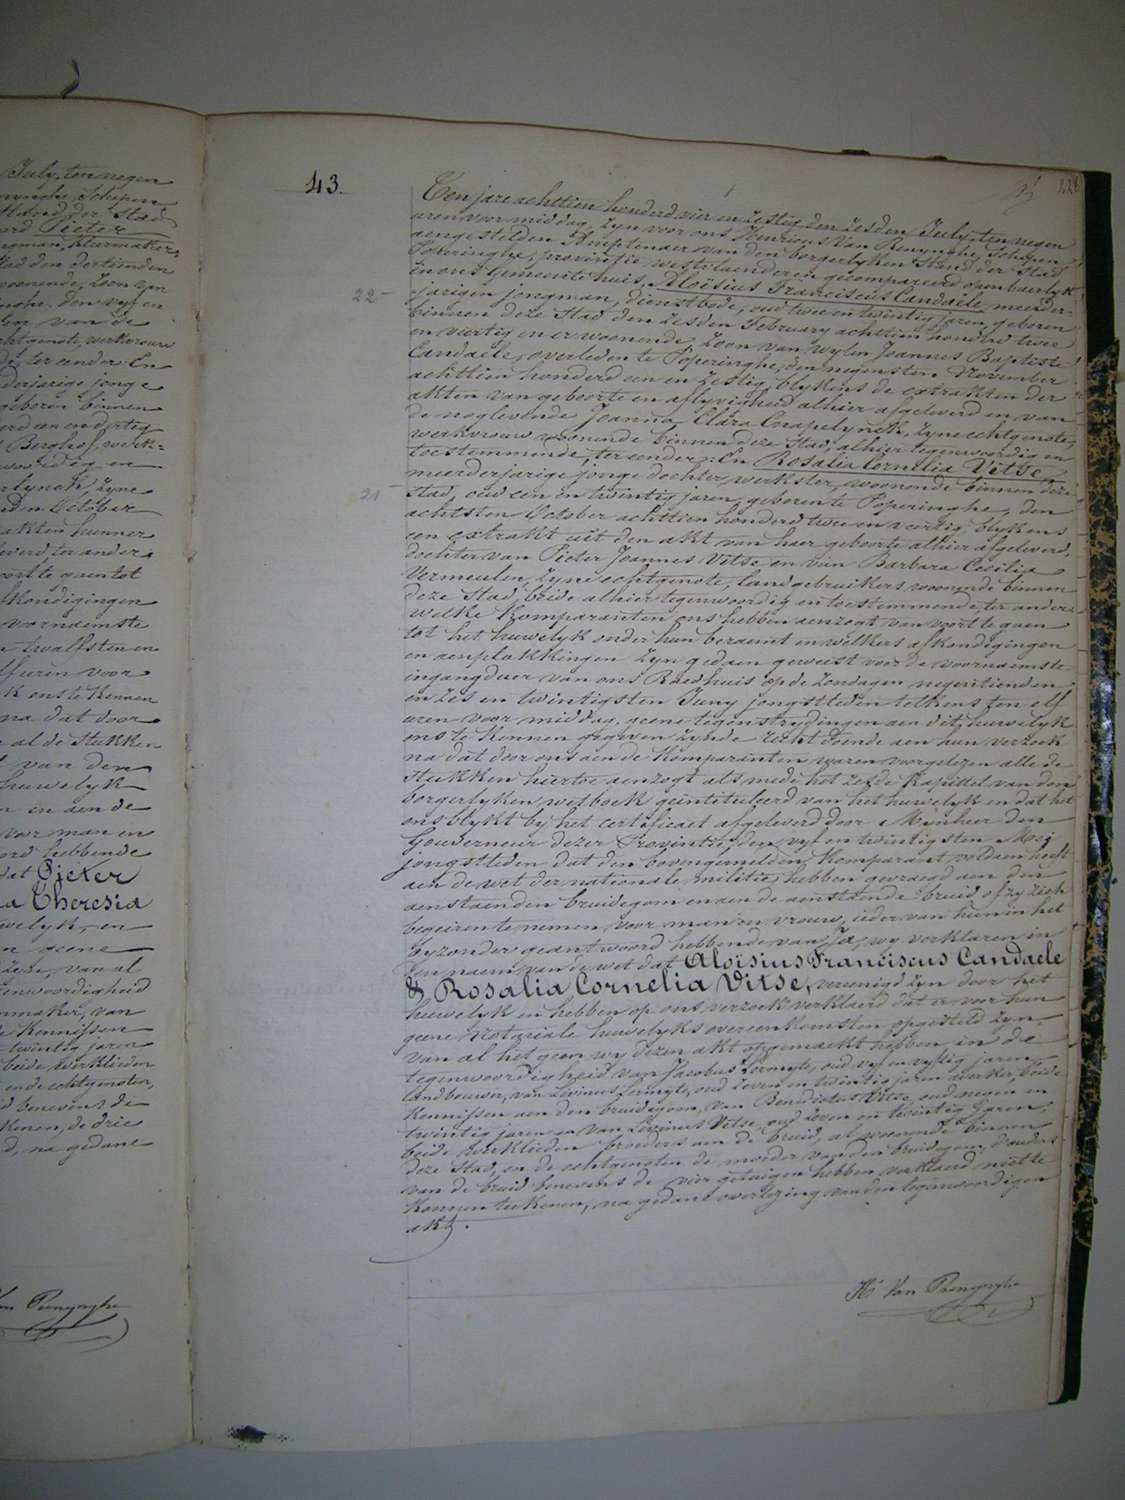 July, ten negen
Schepen
Stand der Stad
Pieter
Kleermaker,
Stad den dertienden
woonende, zoon van
den vyf en
van de
echtgenote, werkvrouw
de, ter eender En
derjarige jonge
geboren binnen
en dertig
Berghof, werk=
en
zyne
den October
akten hunner
leverd ter ander
voort te gaen tot
kondigingen
voornaemste
twalfsten en
elf uren voor
k ons te kennen
na dat door
al de Stukken
van den
huwelyk
en aen de
voor man en
ord hebbende
dat Pieter
a Theresia
welyk, en
geene
zyn, van al
enwoordigheid
maker, van
kennissen
twintig jaren
beide werklieden
en de echtgenoten,
benevens de
de drie
d, na gedane
Van Renynghe
43.
22-
21-
Ten jare achttien honderd vier en zestig den zesden July, ten negen
uren voor middag, zyn voor ons Henricus Van Renynghe, Schepen
aengestelden Amptenaer van den borgerlyken Stand der Stad
Poperinghe, provintie westvlaenderen gecompareerd openbaerlyk
in ons Gemeentehuis, Aloisius Franciscus Candaele, meerder-
jarigen jongman, dienstbode, oud twee en twintig jaren, geboren
binnen deze Stad den zesden February achttien honderd twee
en veertig en er woonende, zoon van wylen Joannes Baptiste
Candaele, overleden te Poperinghe, den negensten November
achttien honderd een en zestig, blykens de extrakten der
akten van geboorte en aflyvigheid alhier afgeleverd en van
de noglevende Joanna Clara Crapelynck, zyne echtgenote,
werkvrouw woonende binnen deze Stad, alhier tegenwoordig en
toestemmende, ter eender; En Rosalia Cornelia Vitse,
meerderjarige jonge dochter, werkster, woonende binnen deze
Stad, oud een en twintig jaren, geboren te Poperinghe, den
achtsten October achttien honderd twee en veertig blykens
een extrakt uit den akt van haer geboorte alhier afgeleverd,
dochter van Pieter Joannes Vitse en van Barbara Cecilia
Vermeulen, zyne echtgenote, landgebruikers woonende binnen
deze Stad, beide alhier tegenwoordig en toestemmende, ter ander:
welke Komparanten ons hebben aenzogt van voort te gaen
tot het huwelyk onder hun beraemt en welkers afkondigingen
en aenplakkingen zyn gedaen geweest voor de voornaemste
ingangduer van ons Raedhuis op de zondagen negentienden
en zes en twintigsten Juny jongstleden telkens ten elf
uren voor middag, geene tegenstrydingen aen dit huwelyk
ons te kennen gegeven zynde recht doende aen hun verzoek
na dat door ons aen de Komparanten waren voorgelezen alle de
Stukken hiertoe aenzogt als mede het zesde Kapittel van den
borgerlyken wetboek geintituleerd van het huwelyk en dat het
ons blykt by het certificaet afgeleverd door Mynheer den
Gouverneur dezer Provintie, den vyf en twintigsten Mey
jongstleden dat den bovengemelden Komparant voldaen heeft
aen de wet der nationale militie, hebben gevraegd aen den
aenstaenden bruidegom en aen de aenstaende bruid of zy zich
begeiren te nemen voor man en vrouw, ieder van hun in het
byzonder geantwoord hebbende van Ja, wy verklaren in
den naem van de wet dat Aloisius Franciscus Candaele
& Rosalia Cornelia Vitse, vereenigd zyn door het
huwelyk en hebben op ons verzoek verklaerd dat er voor hun
geene Notariale huwelyks overeenkomsten opgesteld zyn,
van al het geen wy dezen akt opgemaekt hebben in de
tegenwoordigheid van Jacobus oud vyf en vyftig jaren
landbouwer, van Livinus oud zeven en twintig jaren werker, beide
Kennissen aen den bruidegom, van Benedictus Vitse, oud negen en
twintig jaren en van Livinus Vitse, oud zeven en twintig jaren,
beide werklieden broeders aen de bruid, al woonende binnen
deze Stad, en de echtgenoten de moeder van den bruidegom, d'ouders
van de bruid benevens de vier getuigen hebben verklaerd niet te
konnen teekenen, na gedane overlezing van den tegenwoordigen
akt.
Hri Van Renynghe